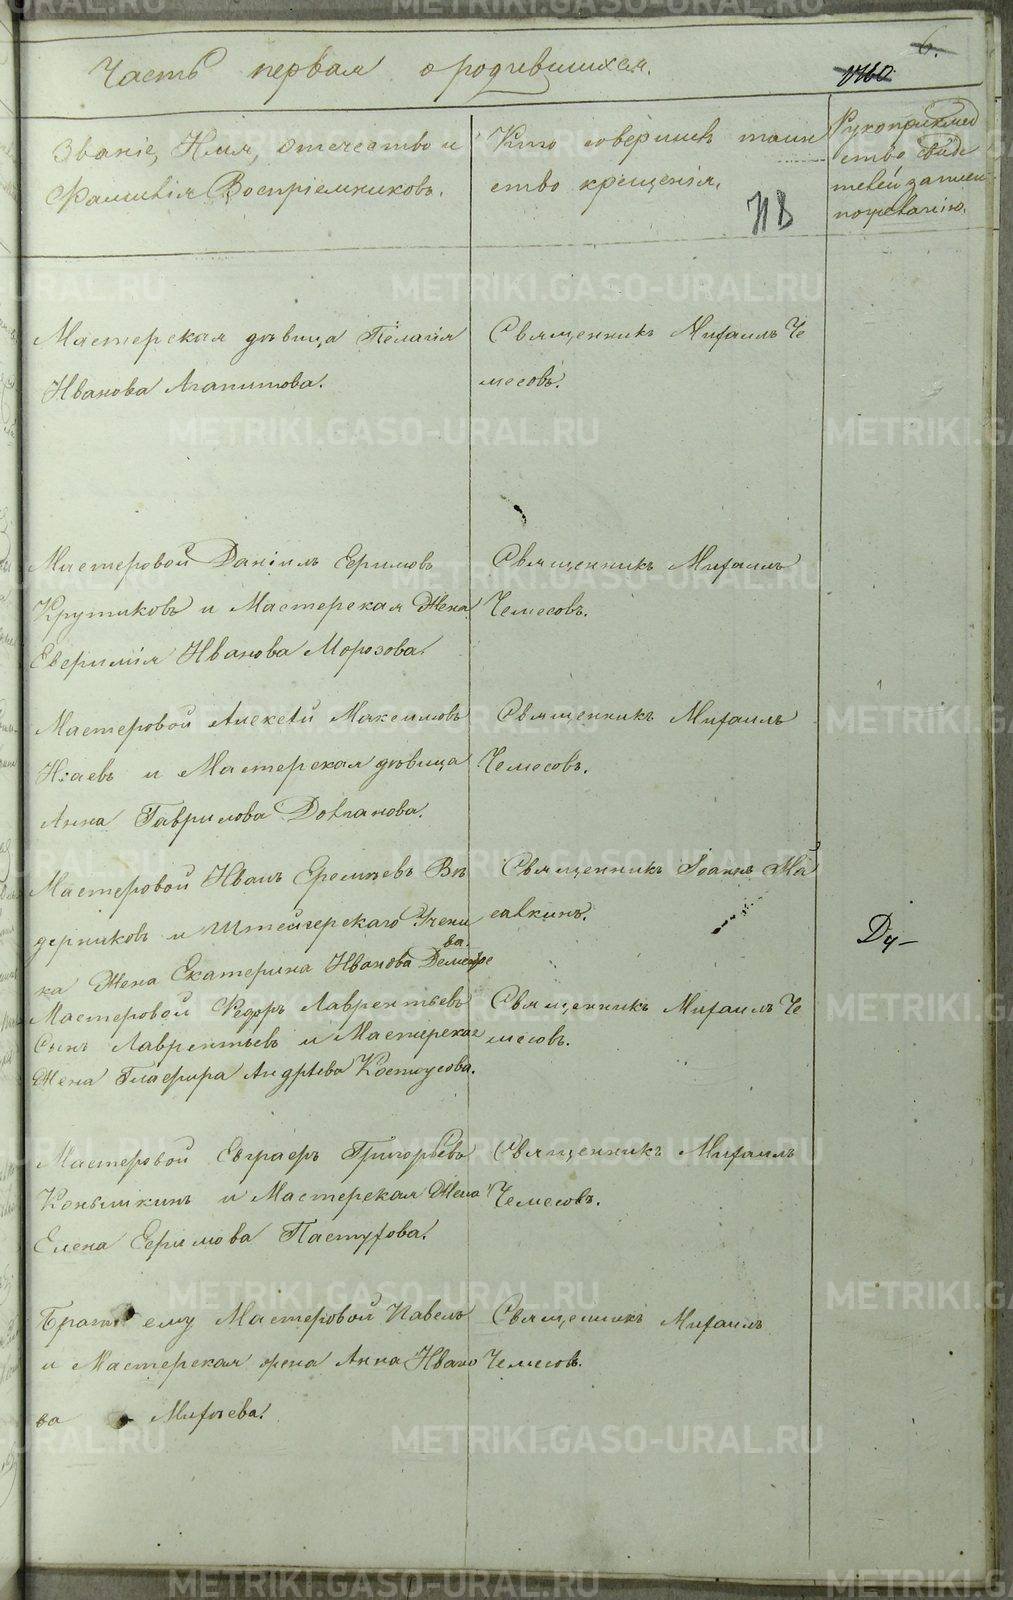 6.
1760
Часть первая о родившихся.
Званіе, Имя, Отечество и
Фамилія Воспріемниковъ.
Кто совершилъ таин
ство крещенія.
Рукоприклад
ство свиде
телей записи
по желанію.
Мастерская дѣвица Пелагія
Иванова Агапитова.
Священникъ Михаилъ Че
месовъ.
Мастеровой Даніилъ Ефимовъ
Крутиковъ и Мастерская Жена
Евфимія Иванова Морозова.
Священникъ Михаилъ
Чемесовъ.
Мастеровой Алексѣй Максимовъ
и Мастерская дѣвица
Анна Гаврилова
Священникъ Михаилъ
Чемесовъ.
Мастеровой Иванъ Еремѣевъ Вѣ
дерниковъ и Штейгерскаго Учени
ка Жена Екатерина Иванова
Священникъ Іоаннъ
Мастеровой Федоръ Лаврентьевъ
Сынъ Лаврентьевъ и Мастерская
Жена Глафира Андрѣева Костоусова.
Священникъ Михаилъ Че
месовъ.
Мастеровой Евграфъ Григорьевъ
Конышкинъ и Мастерская Жена
Елена Ефимова Пастухова.
Священникъ Михаилъ
Чемесовъ.
Братъ ему Мастеровой Павелъ
и Мастерская жена Анна Ивано
ва Михѣева.
Священникъ Михаилъ
Чемесовъ.
Ду-
METRIKI.GASO-URAL.RU